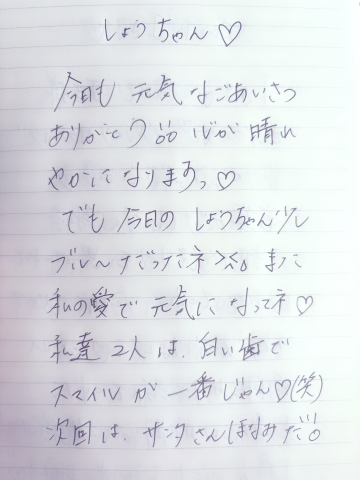 しょうちゃん♡
今日も 元気 なごあいさつ
ありがとう 心が 晴れ
やかに なりますっ♡
でも 今日の しょうちゃん少し
ブルーだったネ また
私の愛で 元気に なってネ♡
私達 2人 は、白い歯で
スマイル が 一番 じゃん♡(笑)
次回は、サンタさん だ!